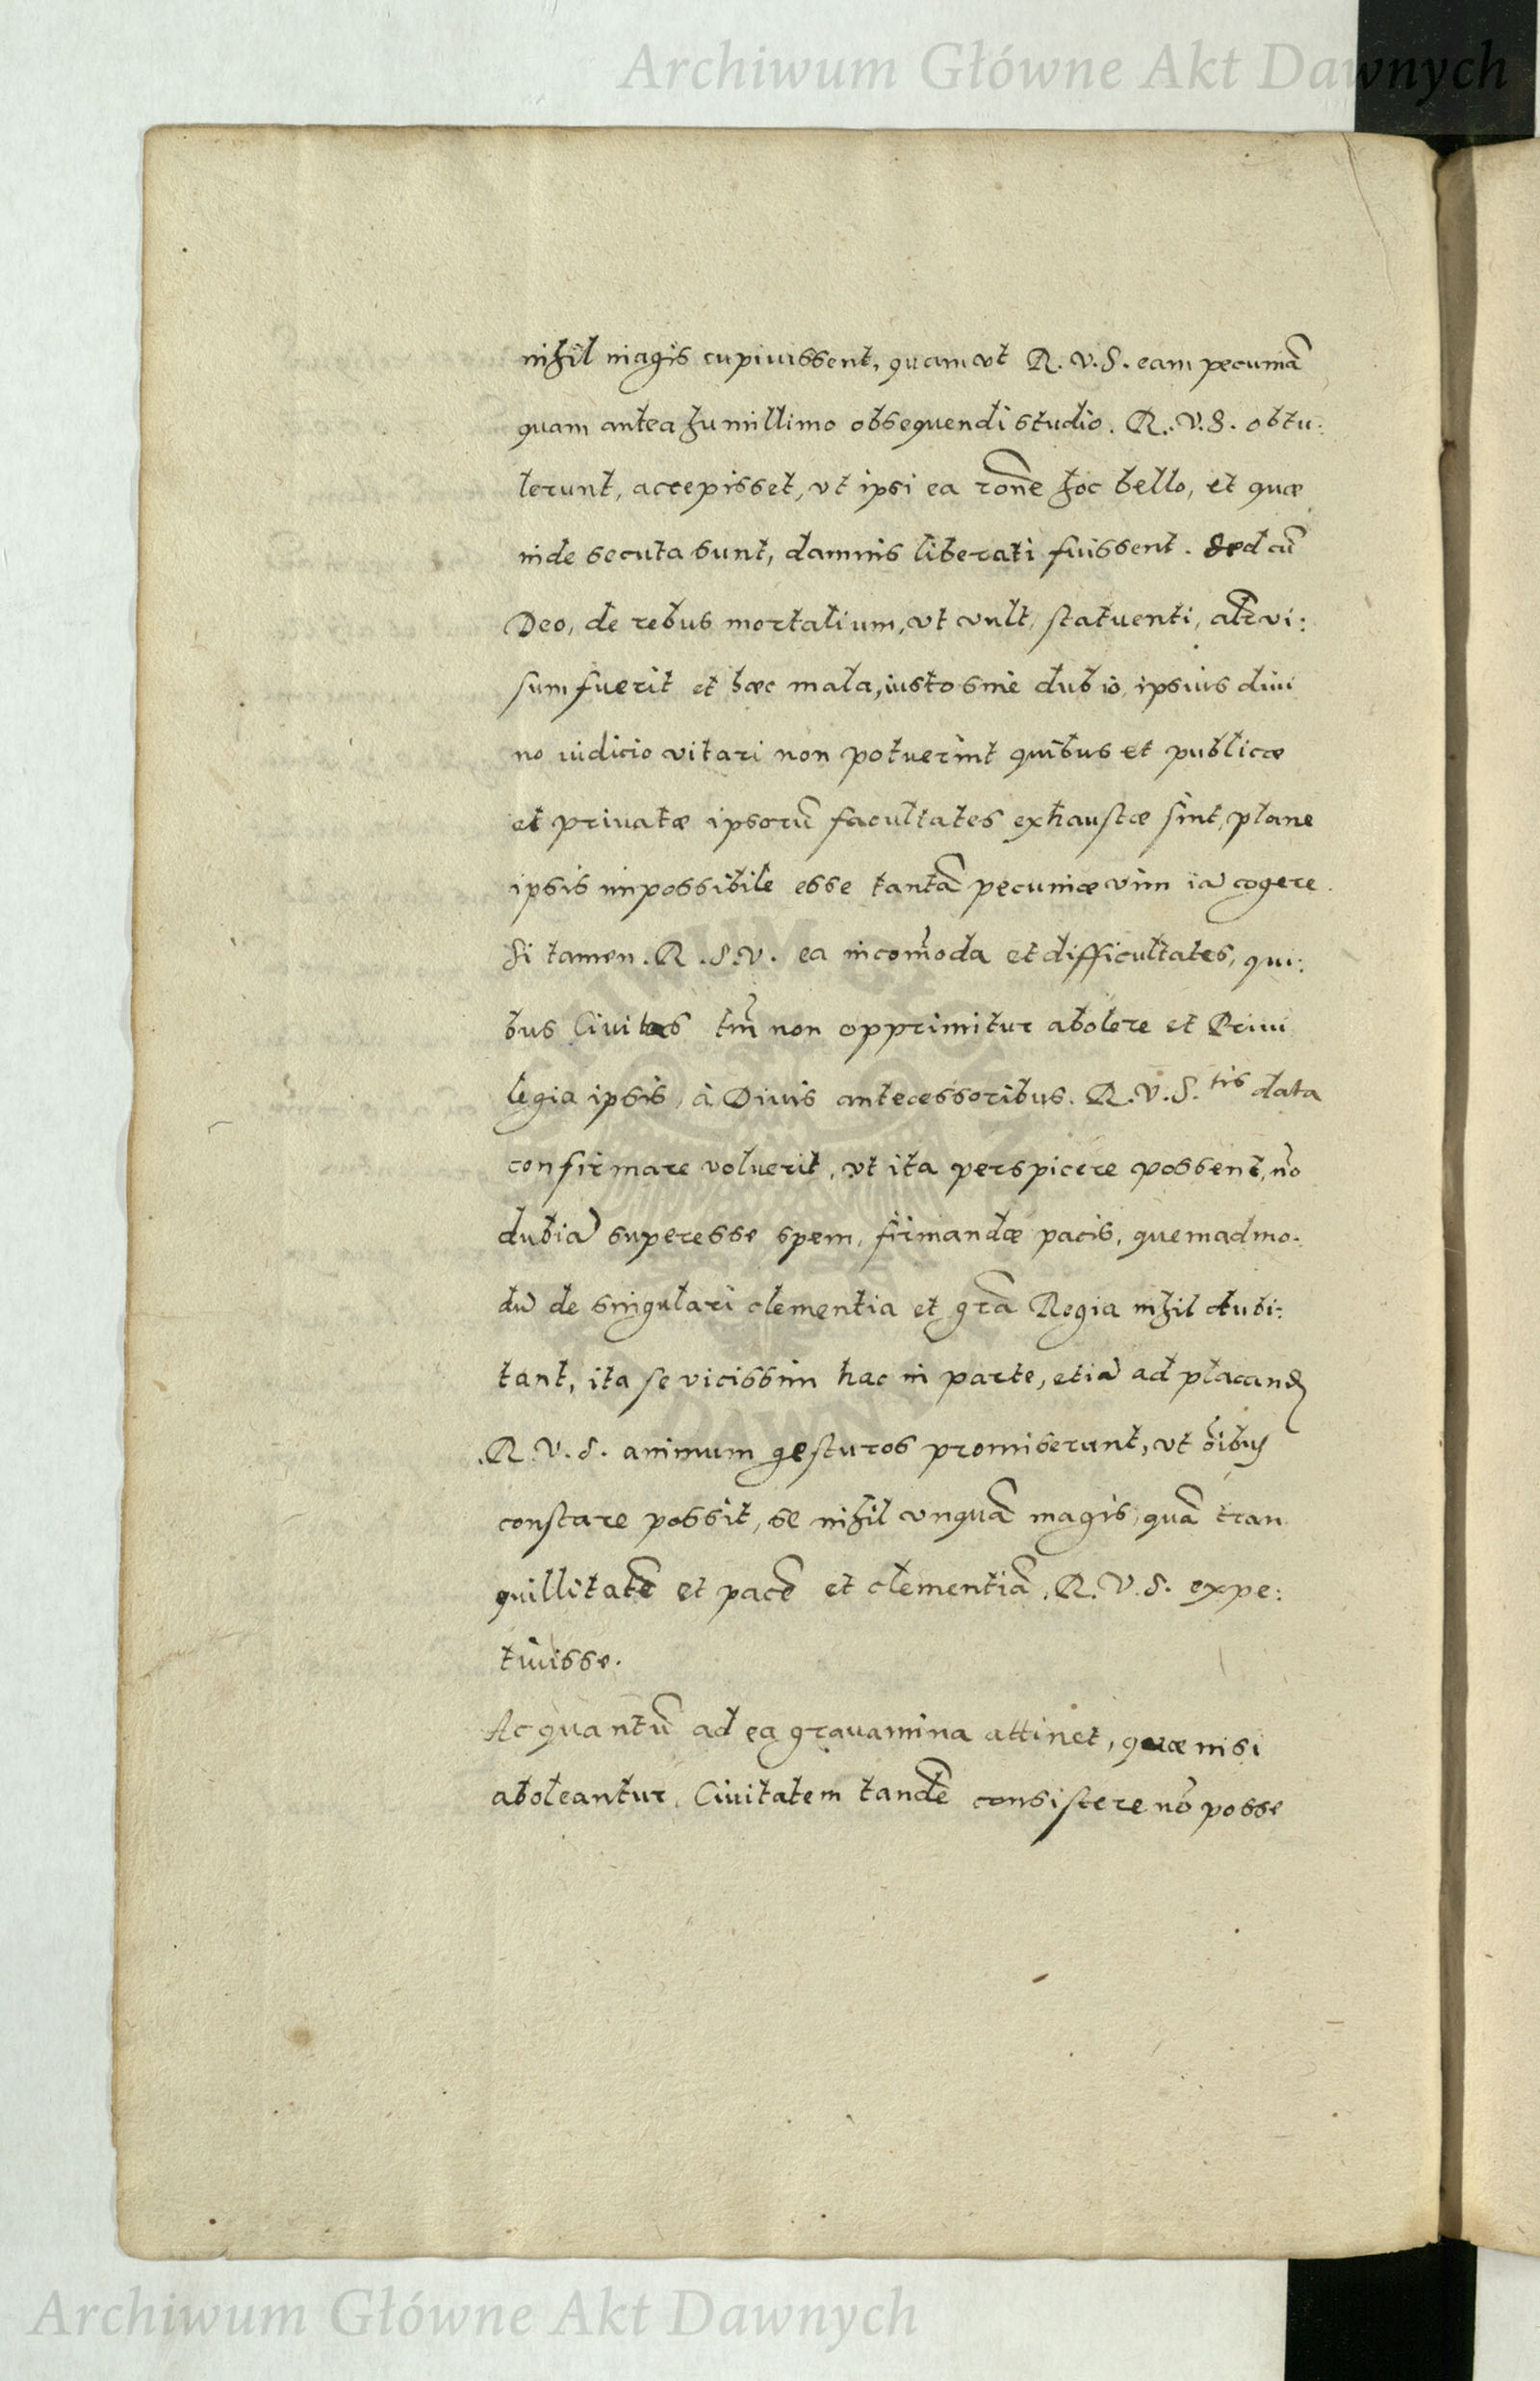 Archiwum Główne Akt Dawnych
nihil magis cupiuissent, quam vt R. V. S. eam pecuniā
quam antea humillimo obsequendi studio. R. V. S. obtu:
lerunt, accepisset, vt ipsi ea rōne hoc bello, et quæ
inde secuta sunt, damnis liberati fuissent. Sed cū
Deo, de rebus mortalium, vt vult, statuenti, alr̄ vi:
sum fuerit et hæc mala, iusto sine dubio, ipsius diui
no iudicio vitari non potuerint quibus et publicæ
et priuatæ ipsorū facultates exhaustæ sint, plane
ipsis impossibile esse tantā pecuniæ vim iā cogere.
Si tamen. R. S. V. ea incom̄oda et difficultates, qui:
bus Ciuitas tm̄ non opprimitur abolere et Priui
legia ipsis, à Diuis antecessoribus. R. V. S.tis data
confirmare voluerit, vt ita perspicere possent, nō
dubiā superesse spem, firmandæ pacis, quemadmo:
dū de singulari clementia et gr̄a Regia nihil dubi:
tant, ita se vicissim hac in parte, etiā ad placand
R. V. S. animum gesturos promiserunt, vt oībus
constare possit, se nihil vnquā magis, quā tran
quillitatē et pacē et clementiā. R. V. S. expe:
tiuisse.
Ac quantū ad ea grauamina attinet, quæ nisi
aboleantur, Ciuitatem tandē consistere nō posse
Archiwum Główne Akt Dawnych